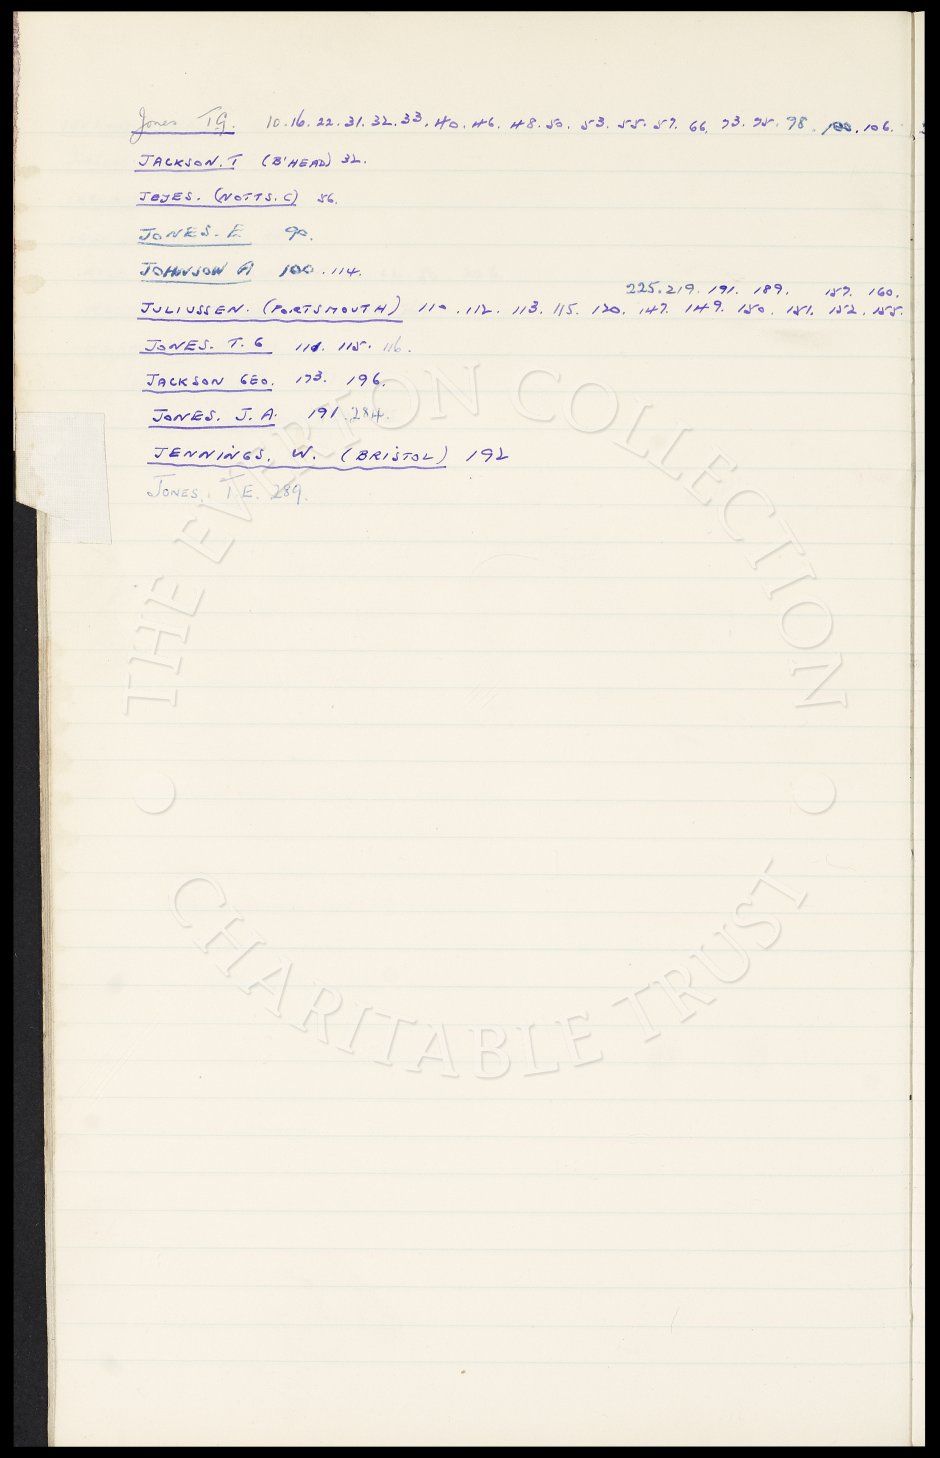 Jones TG. 10.16.22.31.32.33.40.46.48.50.53.55.57.66.73.75.78.100.106.
JACKSON.T (B'HEAD) 32.
JOYES. (NOTTS.C) 56.
JONES. E 90.
JOHNSON A 100.114.
225.219.191.189. 187. 160.
JULIUSSEN. (PORTSMOUTH) 110.112.113.115.120.147.149.150.151.152.155.
JONES. T. G 111. 115. 116.
JACKSON GEO. 173. 196.
JONES. J. A. 191.284.
JENNINGS. W. (BRISTOL) 192
JONES. T. E. 289.
THE EVERTON COLLECTION
CHARITABLE TRUST